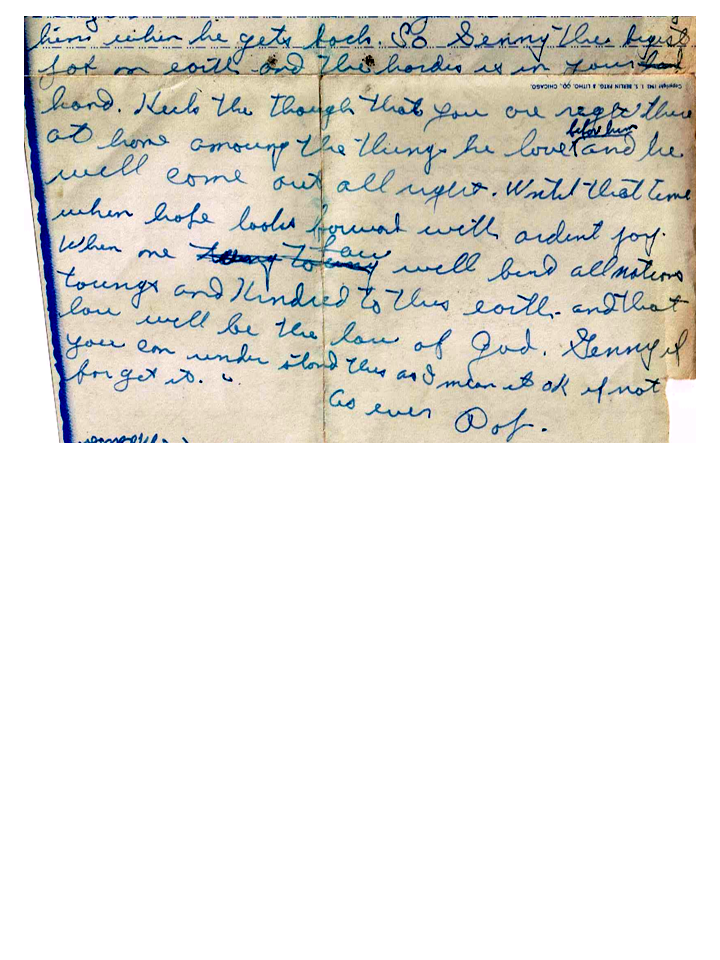 him when he gets back. So Genny the bigest
job on earth and the hardes is in your had
Copyright 1942 I. S. BERLIN PRTG. & LITHO. CO., CHICAGO.
hand. Keek the though that you are right there
before him
at home amoung the things he loves and he
will come out all right. Until that time
when hope looks forward with ardent joy.
law
When one will bind all nations
toungs and Kindred to this earth. and that
law will be the law of God. Genny if
you can under stand this as I mean it ok if not
forget it.
As ever Pop.